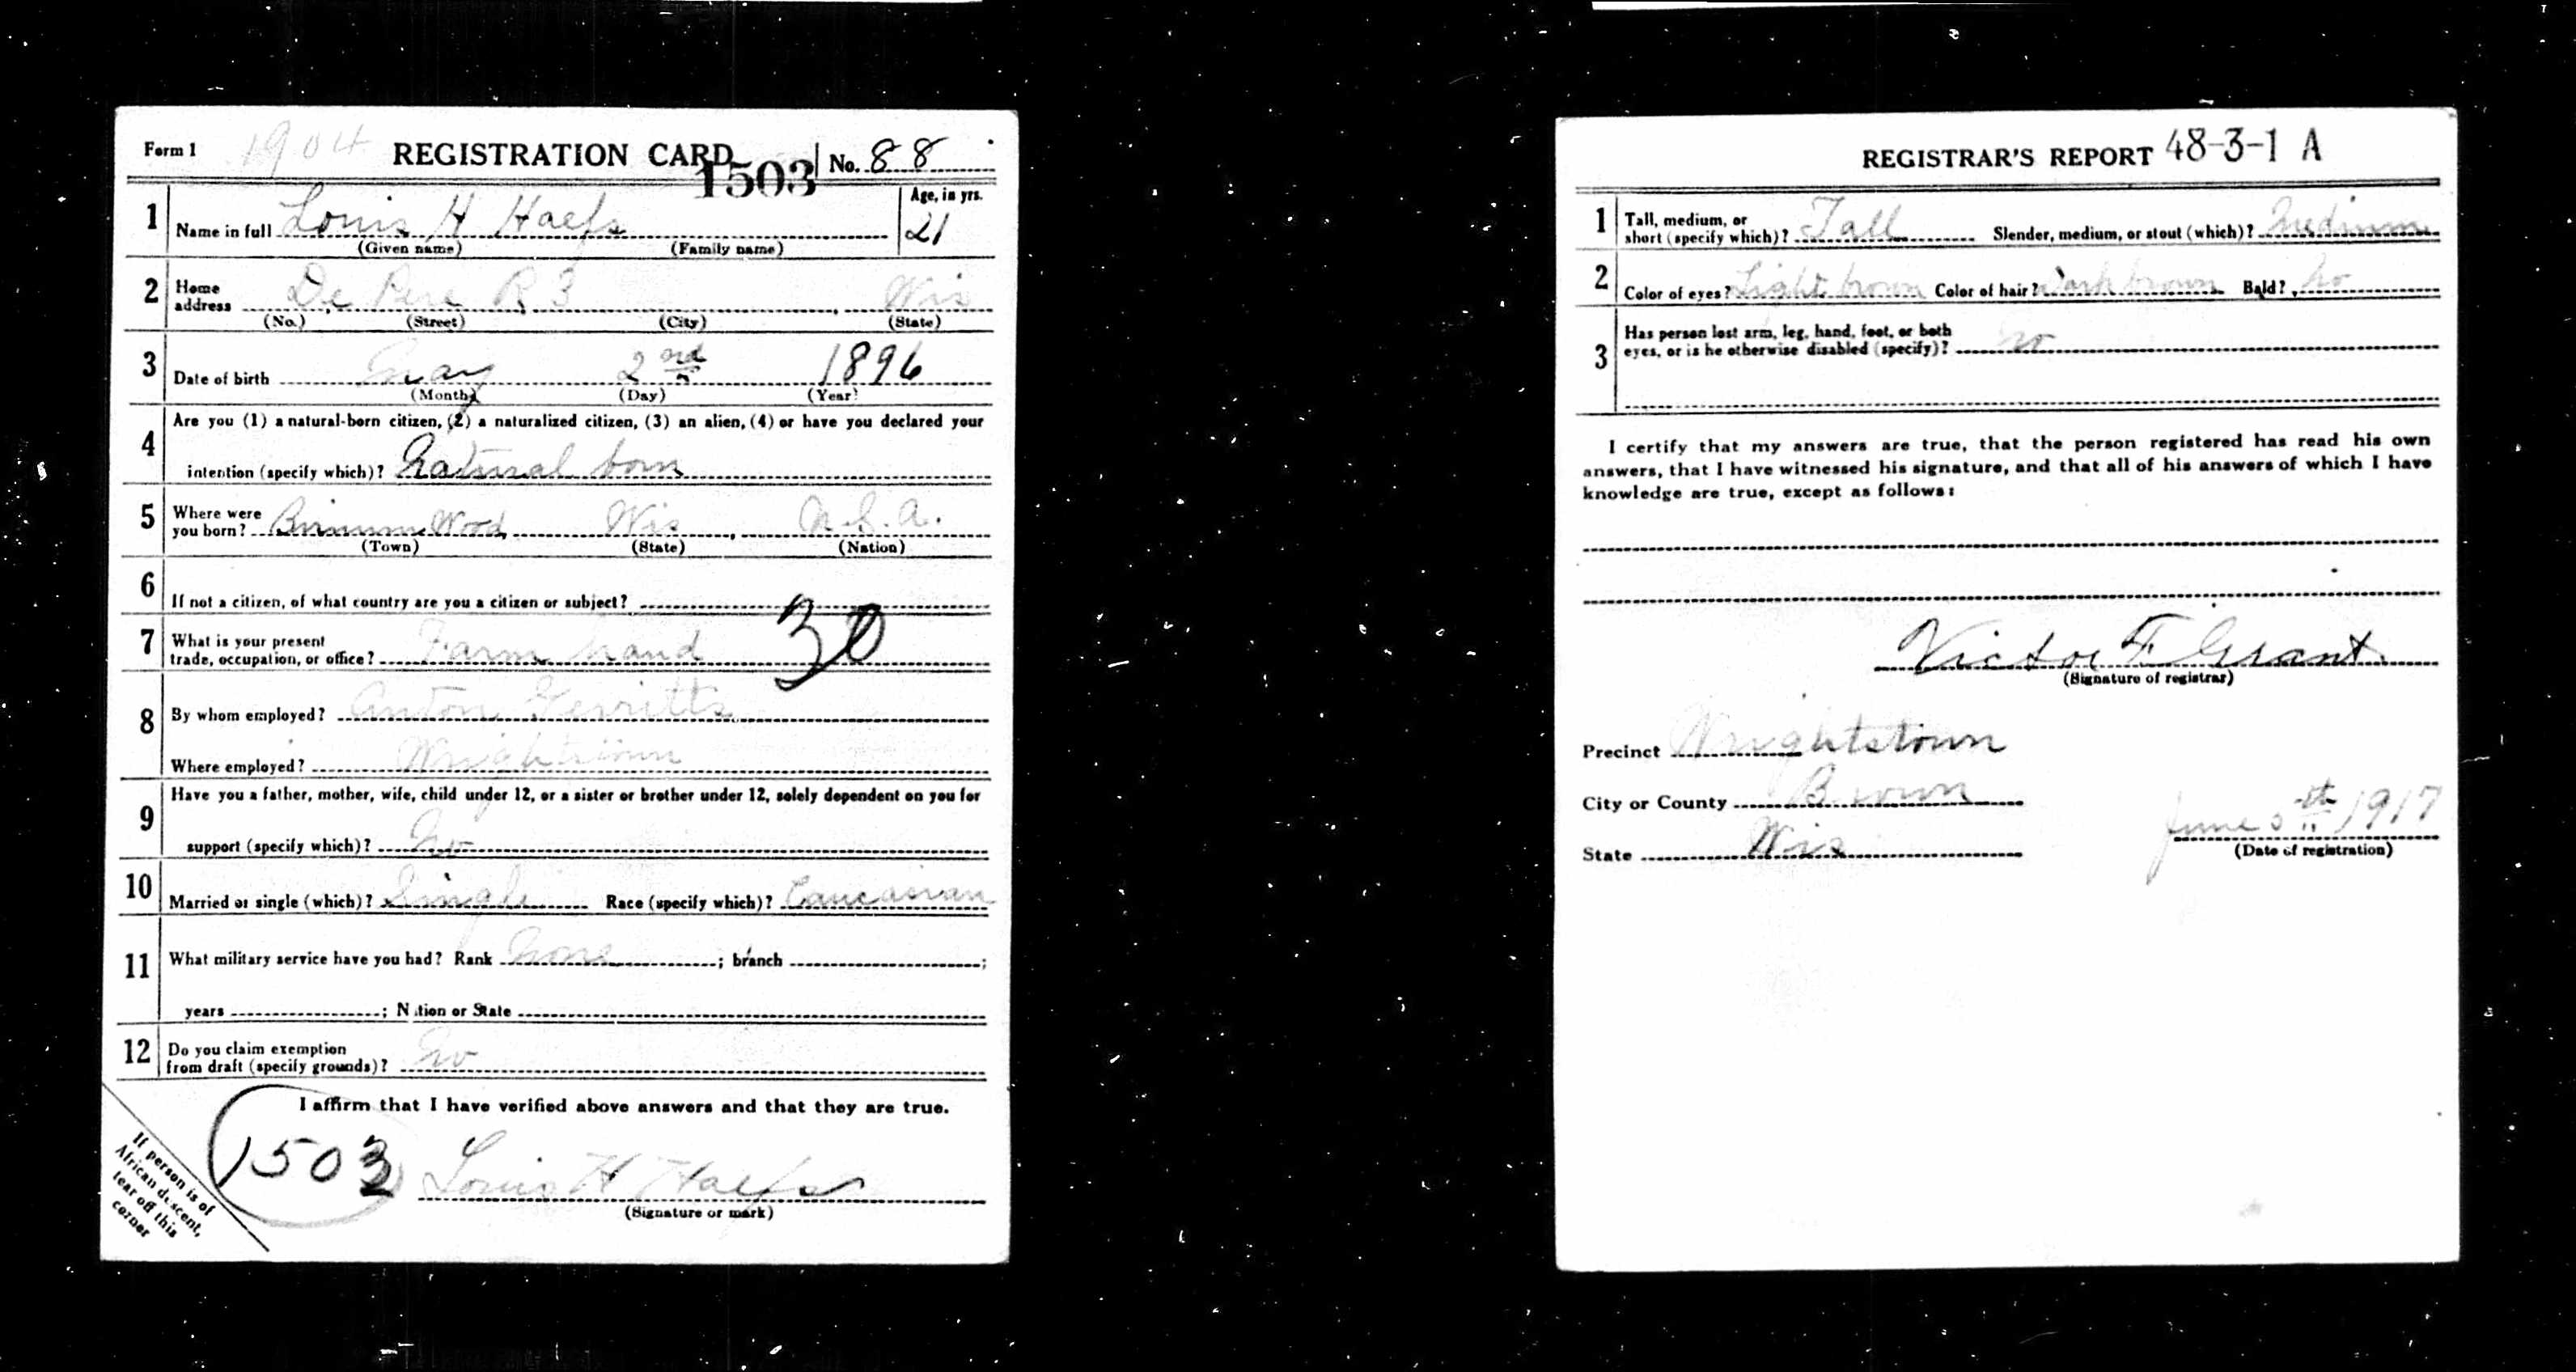 Form 1 1904 REGISTRATION CARD No. 88
1503
1 Name in full Louis H Haefs Age, in yrs. 21
(Given name) (Family name)
2 Home address De Pere R 3 Wis
(No.) (Street) (City) (State)
3 Date of birth May 2nd 1896
(Month) (Day) (Year)
4 Are you (1) a natural-born citizen, (2) a naturalized citizen, (3) an alien, (4) or have you declared your
intention (specify which)? Natural born
5 Where were you born? Birnumwood, Wis, U.S.A.
(Town) (State) (Nation)
6 If not a citizen, of what country are you a citizen or subject?
7 What is your present trade, occupation, or office? Farm hand 30
8 By whom employed? Anton Gerritts
Where employed? Wrightstown
9 Have you a father, mother, wife, child under 12, or a sister or brother under 12, solely dependent on you for
support (specify which)? No
10 Married or single (which)? Single Race (specify which)? Caucasian
11 What military service have you had? Rank None ; branch ;
years ; Nation or State
12 Do you claim exemption from draft (specify grounds)? No
I affirm that I have verified above answers and that they are true.
1503 Louis H Haefs
(Signature or mark)
If person is of
African descent,
tear off this
corner
REGISTRAR'S REPORT 48-3-1 A
1 Tall, medium, or short (specify which)? Tall Slender, medium, or stout (which)? Medium
2 Color of eyes? Light brown Color of hair? Dark brown Bald? No
3 Has person lost arm, leg, hand, foot, or both
eyes, or is he otherwise disabled (specify)? no
I certify that my answers are true, that the person registered has read his own
answers, that I have witnessed his signature, and that all of his answers of which I have
knowledge are true, except as follows:
Victor F. Grant
(Signature of registrar)
Precinct Wrightstown
City or County Brown
State Wis
June 5th 1917
(Date of registration)